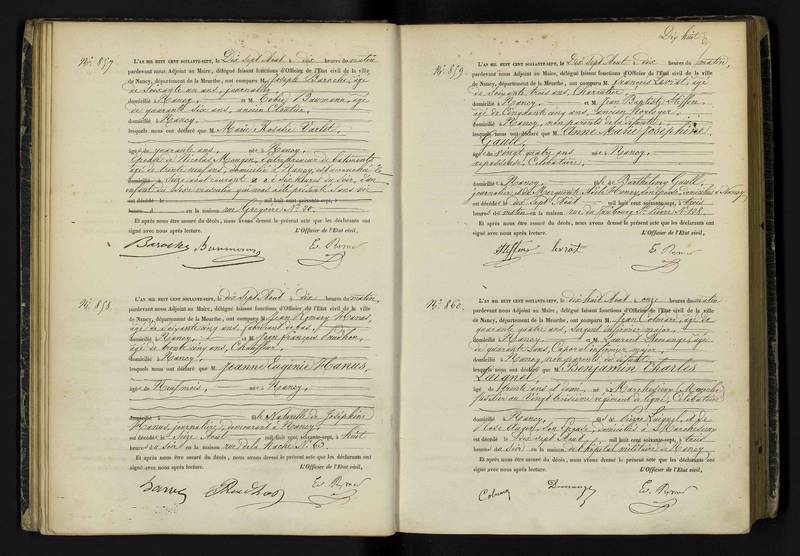 N° 857.
L'AN MIL HUIT CENT SOIXANTE-SEPT, le Dix Sept Aout à dix heures du matin
pardevant nous Adjoint au Maire, délégué faisant fonctions d'Officier de l'Etat civil de la ville
de Nancy, département de la Meurthe, ont comparu M. Joseph Baroche, âgé
de Soixante un ans, journalier,
domicilié à Nancy, et M. Baumann, âgé
de quarante six ans, ancien
domicilié à Nancy,
lesquels nous ont déclaré que Marie Rosalie Varlet,
âgée quarante ans, née à Nancy,
Epouse de Nicolas Mougin, entrepreneur de batiments
âgé de trente neuf ans, domicilié à Nancy, est accouchée le
Seize aout courant à six heures du soir, d'un
enfant du sexe masculin qui nous a été présenté sans vie
est décédé le mil huit cent soixante-sept, à
heures d en la maison rue Grégoire N° 20.
Et après nous être assuré du décès, nous avons dressé le présent acte que les déclarants ont
signé avec nous après lecture. L'Officier de l'Etat civil,
Baroche Baumann
N° 858.
L'AN MIL HUIT CENT SOIXANTE-SEPT, le dix Sept Aout à dix heures du matin,
pardevant nous Adjoint au Maire, délégué faisant fonctions d'Officier de l'Etat civil de la ville
de Nancy, département de la Meurthe, ont comparu M. Jean Hanus,
âgé de Soixante cinq ans, fabricant de bas,
domicilié à Nancy, et M. Jean François
âgé de trente cinq ans, Chauffeur,
domicilié à Nancy,
lesquels nous ont déclaré que Jeanne Eugénie Hanus,
âgée de Neuf mois, née à Nancy,
domicilié à fille Naturelle de Joséphine
Hanus, journalière, demeurant à Nancy,
est décédée le Seize Aout mil huit cent soixante-sept, à huit
heures du soir en la maison rue de la hache N° 63.
Et après nous être assuré du décès, nous avons dressé le présent acte que les déclarants ont
signé avec nous après lecture. L'Officier de l'Etat civil,
Hanus
Dix huit
N° 859.
L'AN MIL HUIT CENT SOIXANTE-SEPT, le Dix Sept Aout à dix heures du matin,
pardevant nous Adjoint au Maire, délégué faisant fonctions d'Officier de l'Etat civil de la ville
de Nancy, département de la Meurthe, ont comparu M. François Livrat, âgé
de Soixante trois ans, Charretier,
domicilié à Nancy, et M. Jean Baptiste
âgé de Cinquante cinq ans, ancien horloger,
domicilié à Nancy, non parents de la défunte,
lesquels nous ont déclaré que Anne Marie Joséphine
Gaull,
âgée de vingt quatre ans, née à Nancy,
repasseuse, Célibataire,
domiciliée à Nancy, fille de Barthélemy Gaull,
journalier, et de Marguerite son épouse, domiciliés à Nancy
est décédée le dix sept Aout mil huit cent soixante-sept, à trois
heures du matin en la maison rue du faubourg St Pierre N° 108.
Et après nous être assuré du décès, nous avons dressé le présent acte que les déclarants ont
signé avec nous après lecture. L'Officier de l'Etat civil,
Livrat
N° 860.
L'AN MIL HUIT CENT SOIXANTE-SEPT, le dix huit Aout à onze heures du matin
pardevant nous Adjoint au Maire, délégué faisant fonctions d'Officier de l'Etat civil de la ville
de Nancy, département de la Meurthe, ont comparu M. Jean âgé de
quarante quatre ans, Sergent infirmier major,
domicilié à Nancy, et M. Laurent âgé
de quarante ans, Caporal infirmier major,
domicilié à Nancy, non parents du défunt,
lesquels nous ont déclaré que Benjamin Charles
Laignel,
âgé de trente ans et demi, né à (Manche)
fusilier au Vingt troisième régiment de ligne, Célibataire,
domicilié à Nancy, fils de Pierre Laignel, et de
Rose son épouse, domiciliés à
est décédé le Dix sept Aout mil huit cent soixante-sept, à trois
heures du soir en la maison de l'hôpital militaire de Nancy
Et après nous être assuré du décès, nous avons dressé le présent acte que les déclarants ont
signé avec nous après lecture. L'Officier de l'Etat civil,